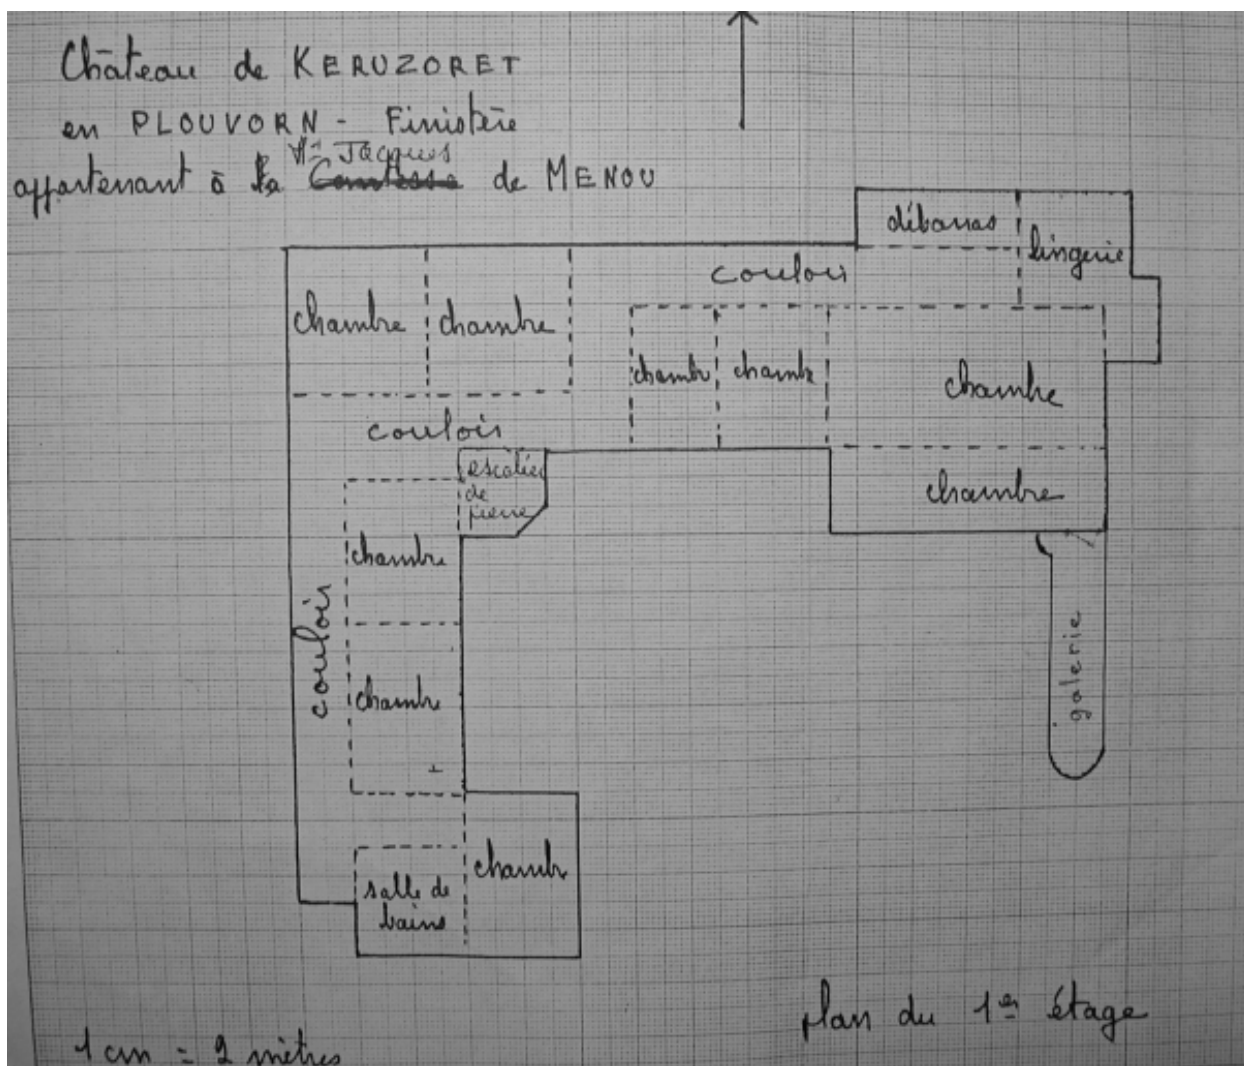 Château de KERUZORET
en PLOUVORN - Finistère
Vte Jacques
appartenant à la Comtesse de MENOU
débarras
lingerie
couloir
chambre
chambre
chambr
chambre
chambre
couloir
escalier
de
pierre
chambre
chambre
couloir
chambre
galerie
chambre
salle de
bains
plan du 1er étage
1 cm = 2 mètres